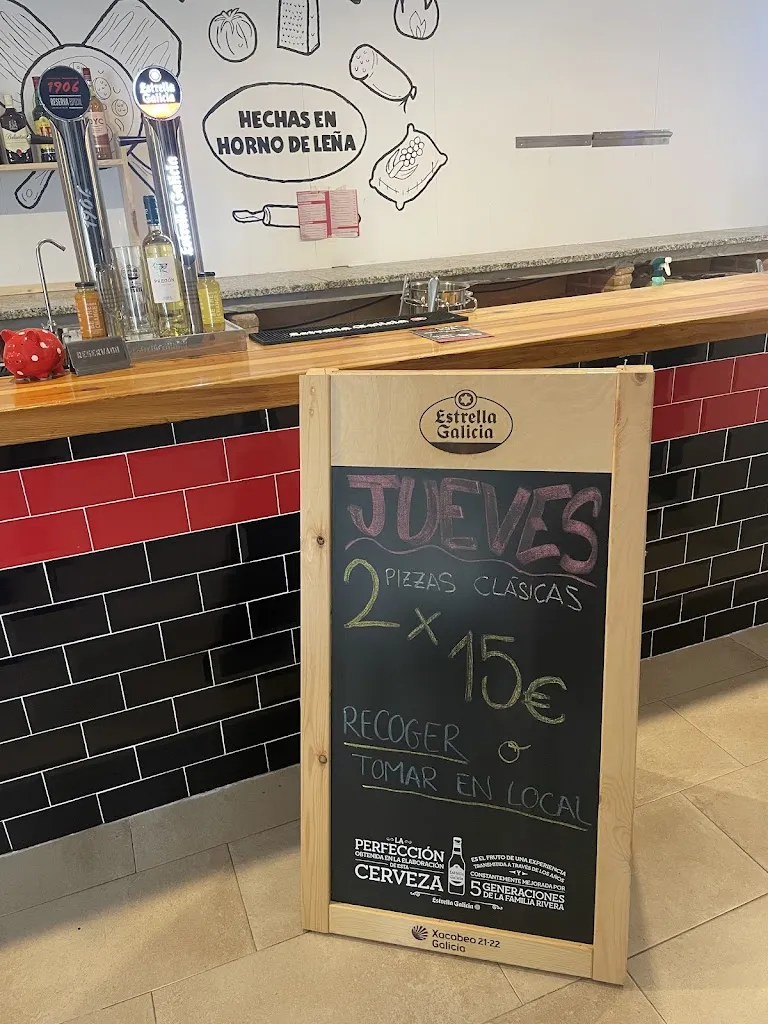 1906
RESERVA ESPECIAL
Estrella
Galicia
1906
Estrella Galicia
HECHAS EN
HORNO DE LEÑA
RESERVADO
Estrella Galicia
Estrella
Galicia
JUEVES
2 PIZZAS CLÁSICAS
x 15€
RECOGER o
TOMAR EN LOCAL
LA
PERFECCIÓN
OBTENIDA EN LA ELABORACIÓN
DE ESTA
CERVEZA
Estrella Galicia
ES EL FRUTO DE UNA EXPERIENCIA
TRANSMITIDA A TRAVÉS DE LOS AÑOS
Y
CONSTANTEMENTE MEJORADA POR
5 GENERACIONES
DE LA FAMILIA RIVERA
Xacobeo 21·22
Galicia